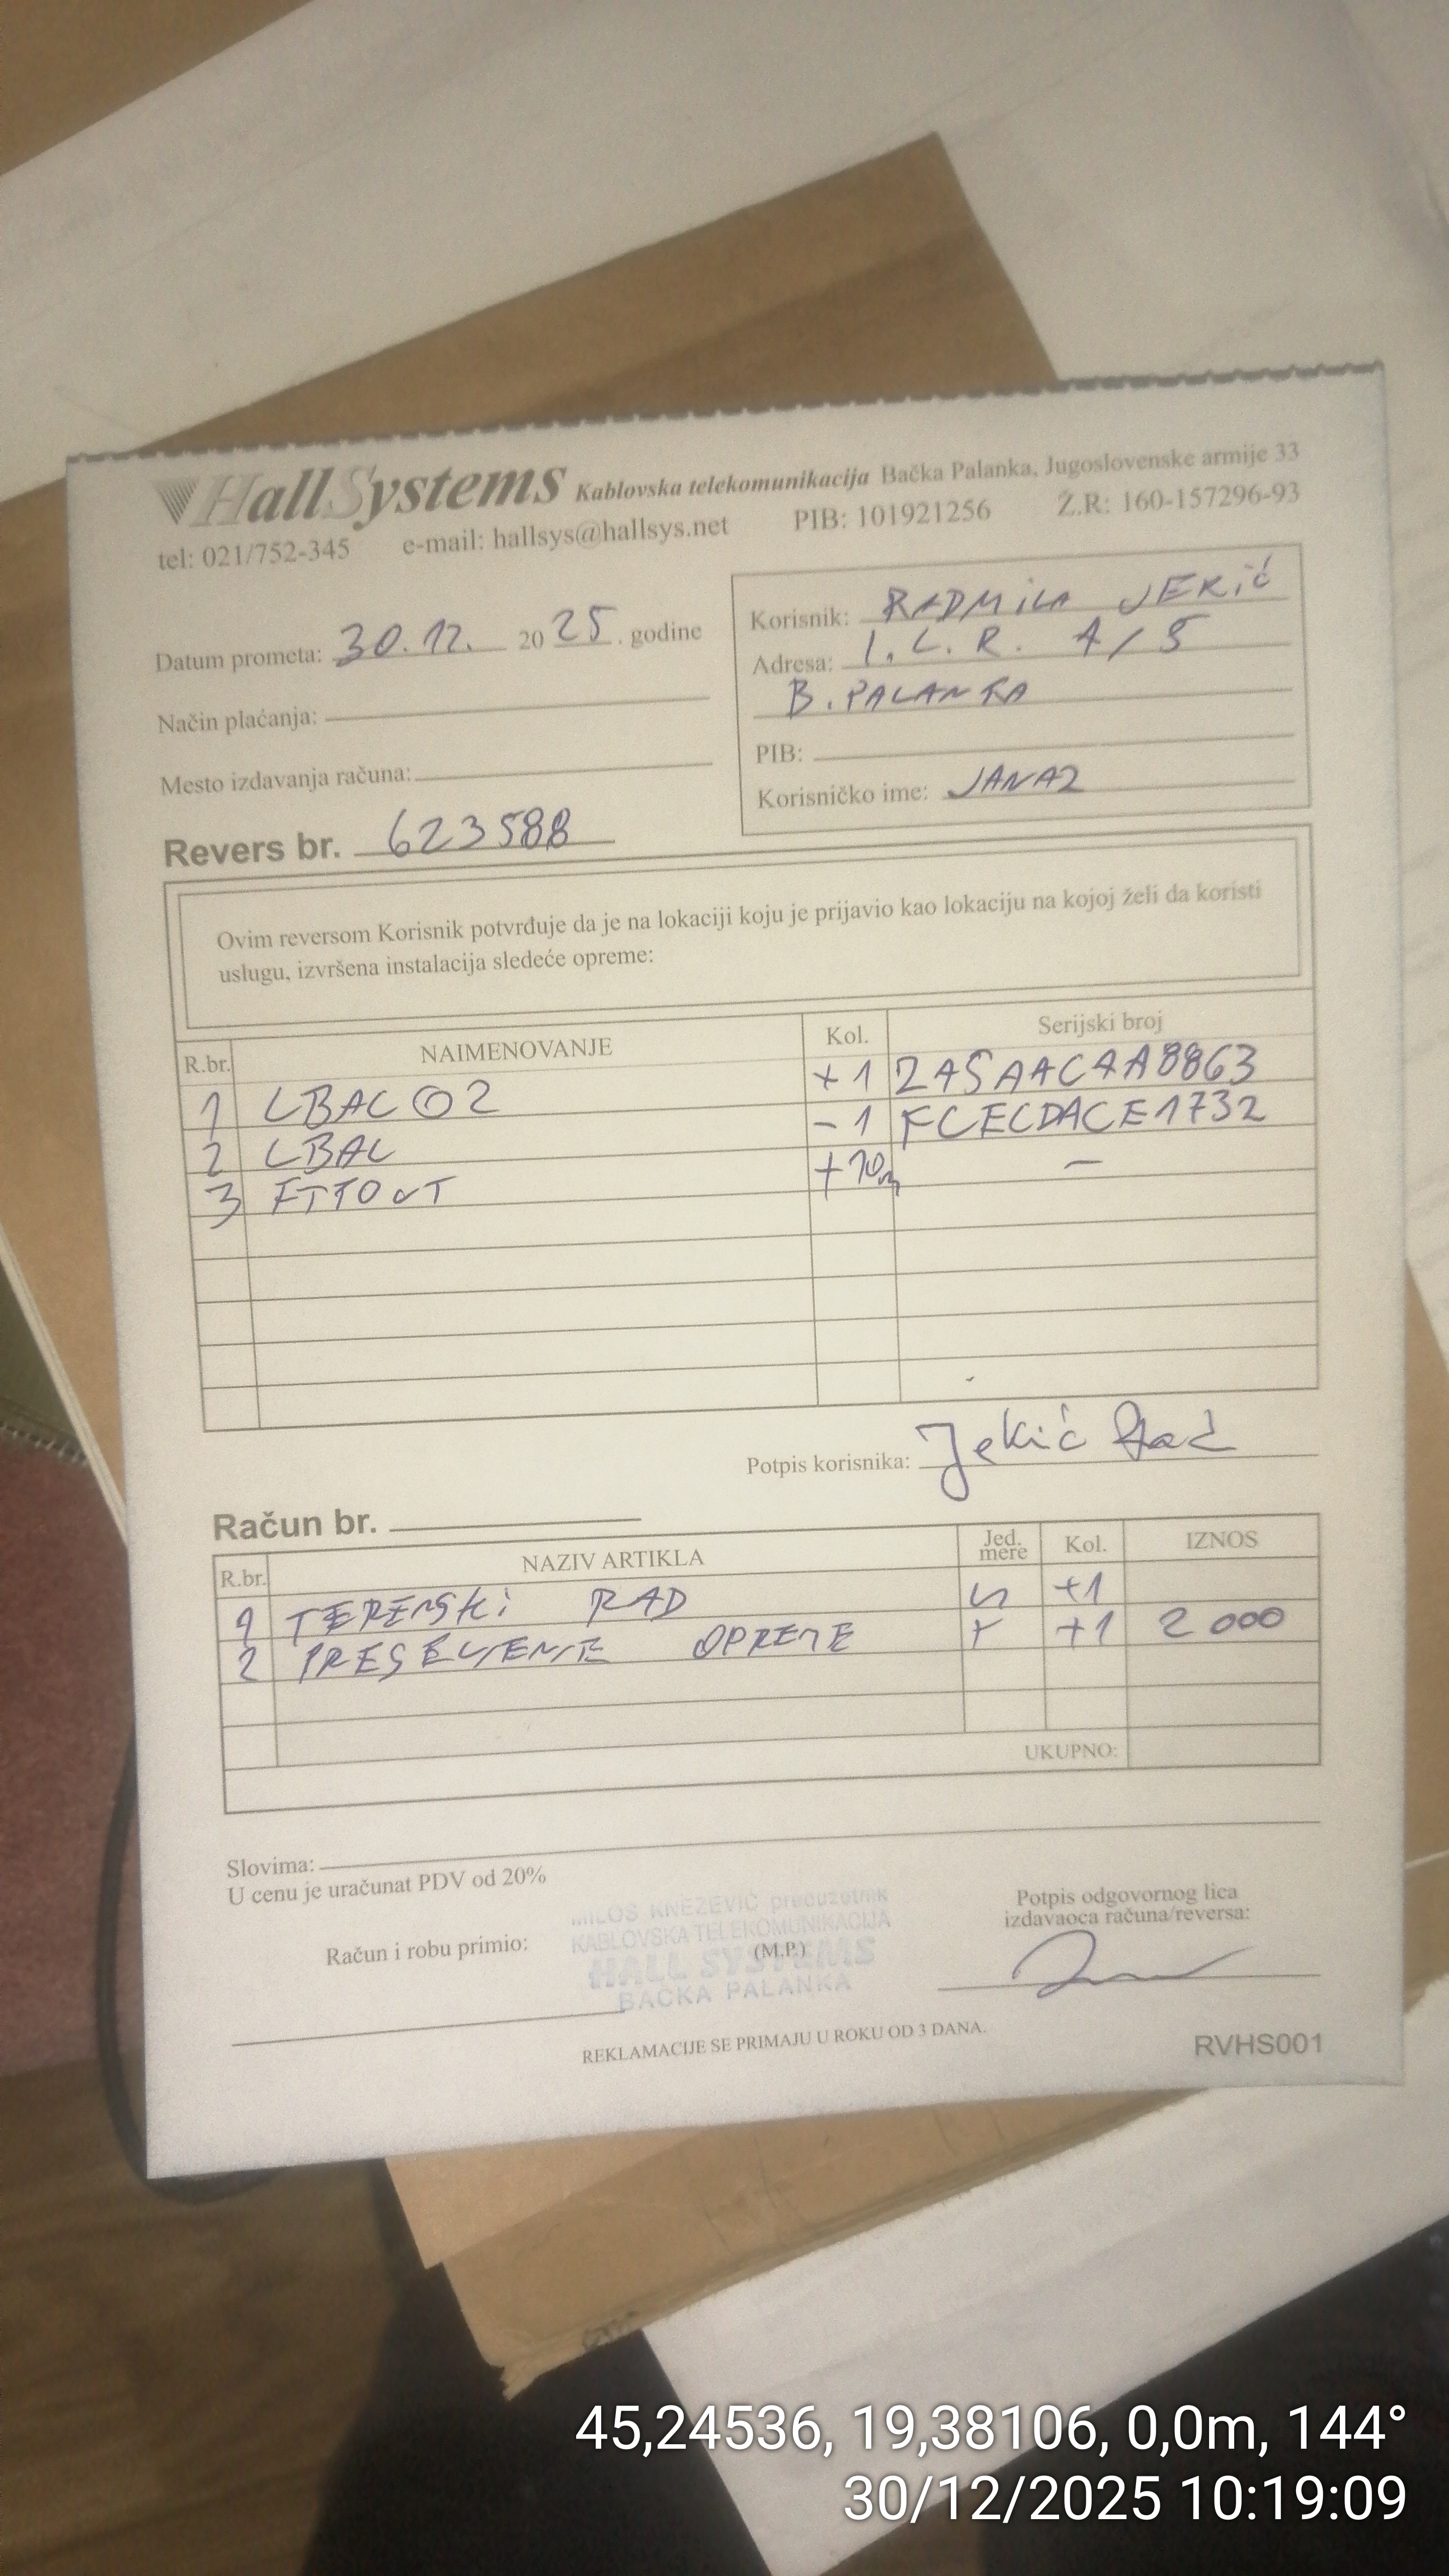 HallSystems Kablovska telekomunikacija Bačka Palanka, Jugoslovenske armije 33
tel: 021/752-345 e-mail: hallsys@hallsys.net PIB: 101921256 Ž.R: 160-157296-93
Datum prometa: 30.12. 20 25. godine
Način plaćanja:
Mesto izdavanja računa:
Revers br. 623588
Korisnik: RADMILA JEKIĆ
Adresa: I. L. R. 4/5
B. PALANKA
PIB:
Korisničko ime: JANA2
Ovim reversom Korisnik potvrđuje da je na lokaciji koju je prijavio kao lokaciju na kojoj želi da koristi
uslugu, izvršena instalacija sledeće opreme:
R.br. NAIMENOVANJE Kol. Serijski broj
1 LBAC02 +1 ZA5AAC4A8863
2 LBAC -1 FCECDACE1732
3 FTTOUT +70m –
Potpis korisnika: Jekić Rad
Račun br.
R.br. NAZIV ARTIKLA Jed. mere Kol. IZNOS
1 TERENSKI RAD +1
2 PRESELJENJE OPREME +1 2000
UKUPNO:
Slovima:
U cenu je uračunat PDV od 20%
MILOŠ KNEŽEVIĆ preduzetnik
KABLOVSKA TELEKOMUNIKACIJA
HALL SYSTEMS
BAČKA PALANKA
Račun i robu primio: (M.P.)
Potpis odgovornog lica
izdavaoca računa/reversa:
REKLAMACIJE SE PRIMAJU U ROKU OD 3 DANA.
RVHS001
45,24536, 19,38106, 0,0m, 144°
30/12/2025 10:19:09